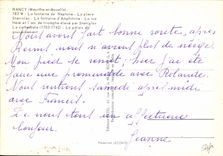 NANCY (Meurthe-et-Moselle)
183 N - La fontaine de Neptune - La place
Stanislas - La fontaine d'Amphitrite - La rue
Héré et l'arc de triomphe élevé par Stanislas
La cathédrale (1703-1742) - Le palais du
gouvernement
Nous avons fait bonne route, après
Reims nous n'avons plus de neige.
Mon pied se remet, hier j'ai été
faire une promenade avec Rolande.
Nous rentrons samedi après midi
avec Francis.
Je vous dons un affectueux
bonjour.
Jeanne